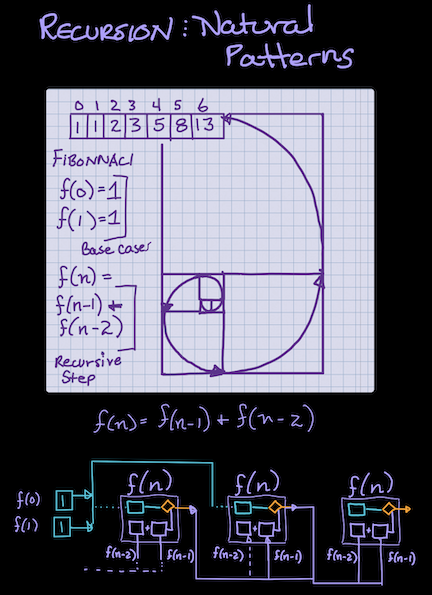 RECURSION: Natural
Patterns
0 1 2 3 4 5 6
1 1 2 3 5 8 13
FIBONNACI
f(0)=1
f(1)=1
Base cases
f(n)=
f(n-1) +
f(n-2)
Recursive
Step
1
f(n)= f(n-1) + f(n-2)
f(n) f(n) f(n)
f(0) 1
f(1) 1
+ + +
f(n-2) f(n-1) f(n-2) f(n-1) f(n-2) f(n-1)